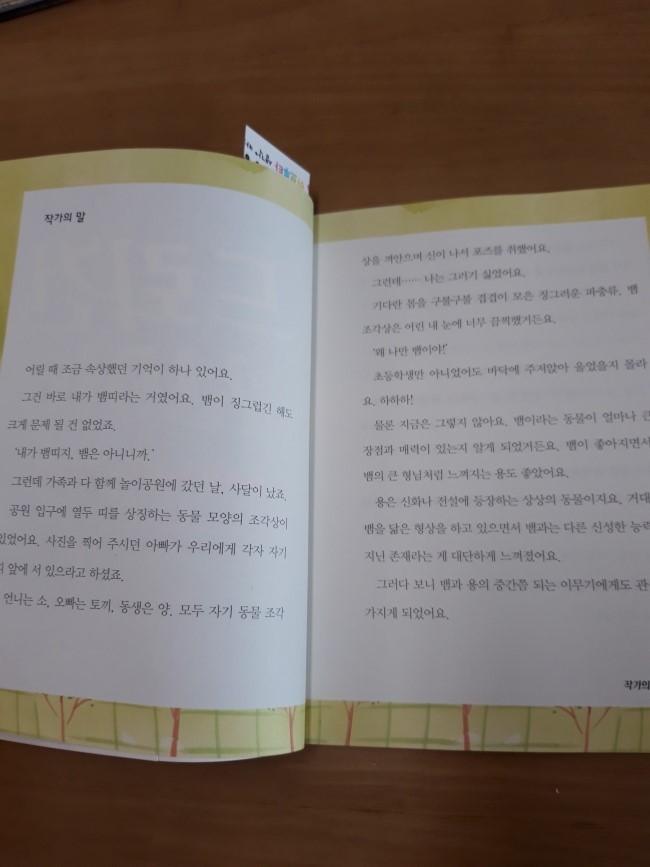 작가의 말
어릴 때 조금 속상했던 기억이 하나 있어요.
그건 바로 내가 뱀띠라는 거였어요. 뱀이 징그럽긴 해도
크게 문제 될 건 없었죠.
'내가 뱀띠지, 뱀은 아니니까.'
그런데 가족과 다 함께 놀이공원에 갔던 날, 사달이 났죠.
공원 입구에 열두 띠를 상징하는 동물 모양의 조각상이
있었어요. 사진을 찍어 주시던 아빠가 우리에게 각자 자기
앞에 서 있으라고 하셨죠.
언니는 소, 오빠는 토끼, 동생은 양. 모두 자기 동물 조각
상을 껴안으며 신이 나서 포즈를 취했어요.
그런데…… 나는 그러기 싫었어요.
기다란 몸을 구불구불 겹겹이 모은 징그러운 파충류. 뱀
조각상은 어린 내 눈에 너무 끔찍했거든요.
'왜 나만 뱀이야!'
초등학생만 아니었어도 바닥에 주저앉아 울었을지 몰라
요. 하하하!
물론 지금은 그렇지 않아요. 뱀이라는 동물이 얼마나 큰
장점과 매력이 있는지 알게 되었거든요. 뱀이 좋아지면서
뱀의 큰 형님처럼 느껴지는 용도 좋았어요.
용은 신화나 전설에 등장하는 상상의 동물이지요. 거대
뱀을 닮은 형상을 하고 있으면서 뱀과는 다른 신성한 능력
지닌 존재라는 게 대단하게 느껴졌어요.
그러다 보니 뱀과 용의 중간쯤 되는 이무기에게도 관
가지게 되었어요.
작가의